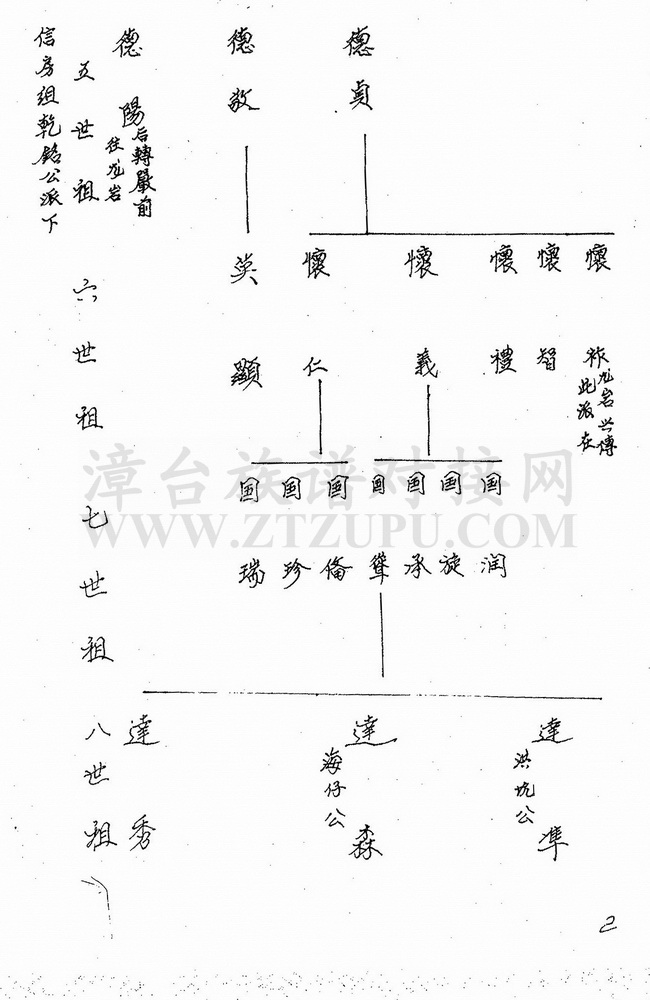 信房组乾銘公派下
五世祖
德陽
后轉嚴前
往龙岩
德敬
德貞
六世祖
英顯
懷仁
懷義
懷禮
懷智
懷祚
龙岩兴傳
此派在
七世祖
国瑞
国珍
国俻
国輦
国承
国旋
国润
八世祖
達秀
達森
海仔公
達準
洪坑公
漳台族谱对接网
WWW.ZTZUPU.COM
2